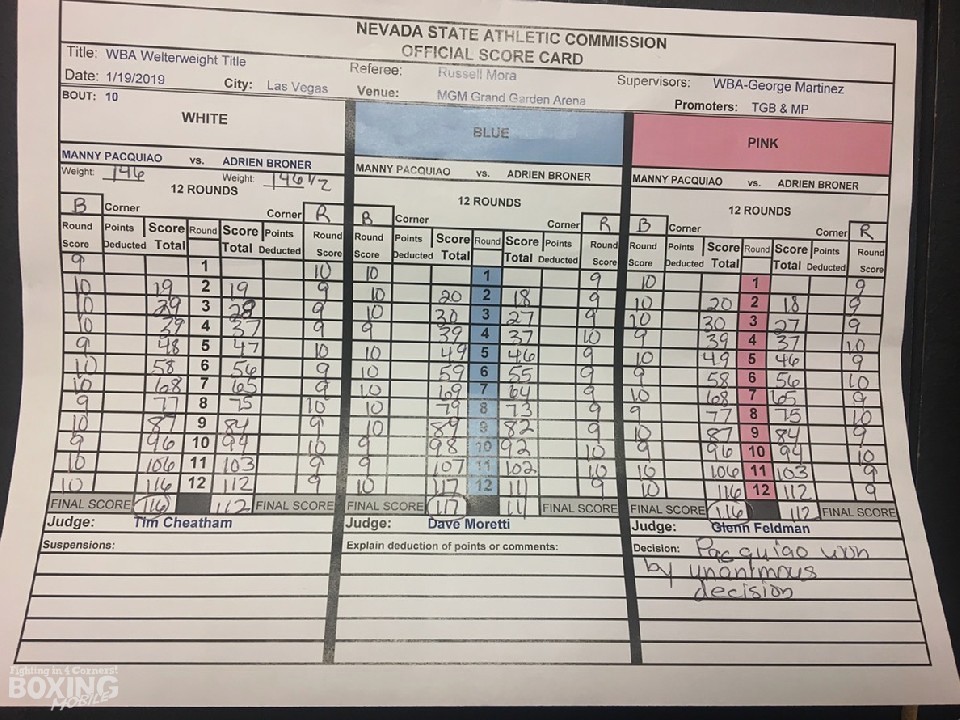 NEVADA STATE ATHLETIC COMMISSION
OFFICIAL SCORE CARD
Title: WBA Welterweight Title Referee: Russell Mora Supervisors: WBA-George Martinez
Date: 1/19/2019 City: Las Vegas Venue: MGM Grand Garden Arena Promoters: TGB & MP
BOUT: 10
WHITE BLUE PINK
MANNY PACQUIAO vs. ADRIEN BRONER MANNY PACQUIAO vs. ADRIEN BRONER MANNY PACQUIAO vs. ADRIEN BRONER
Weight: 146 Weight: 146 1/2
12 ROUNDS 12 ROUNDS 12 ROUNDS
B Corner Corner R B Corner Corner R B Corner Corner R
Round Points Score Round Score Points Round Round Points Score Round Score Points Round Round Points Score Round Score Points Round
Score Deducted Total Total Deducted Score Score Deducted Total Total Deducted Score Score Deducted Total Total Deducted Score
9 1 10 10 1 9 10 1 9
10 19 2 19 9 10 20 2 18 9 10 20 2 18 9
10 29 3 28 9 10 30 3 27 9 10 30 3 27 9
10 39 4 37 9 9 39 4 37 10 9 39 4 37 10
9 48 5 47 10 10 49 5 46 9 10 49 5 46 9
10 58 6 56 9 10 59 6 55 9 9 58 6 56 10
10 68 7 65 9 10 69 7 64 9 10 68 7 65 9
9 77 8 75 10 10 79 8 73 9 9 77 8 75 10
10 87 9 84 9 10 89 9 82 9 10 87 9 84 9
9 96 10 94 10 9 98 10 92 10 9 96 10 94 10
10 106 11 103 9 9 107 11 102 10 10 106 11 103 9
10 116 12 112 9 10 117 12 111 9 10 116 12 112 9
FINAL SCORE 116 112 FINAL SCORE FINAL SCORE 117 111 FINAL SCORE FINAL SCORE 116 112 FINAL SCORE
Judge: Tim Cheatham Judge: Dave Moretti Judge: Glenn Feldman
Suspensions: Explain deduction of points or comments: Decision: Pacquiao won
by unanimous
decision
Fighting in 4 Corners!
BOXING
MOBILE